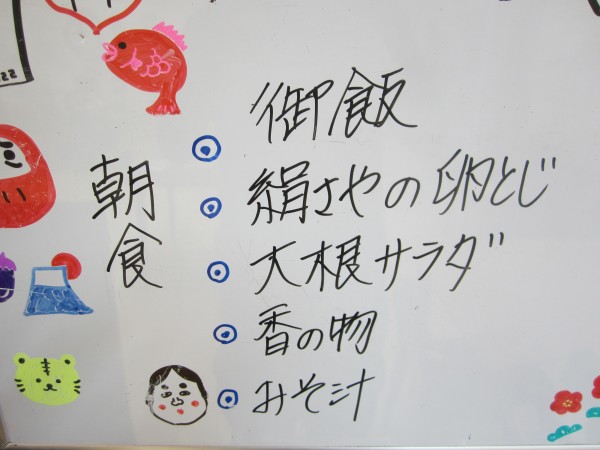 朝食
御飯
絹さやの卵とじ
大根サラダ
香の物
みそ汁
22
い